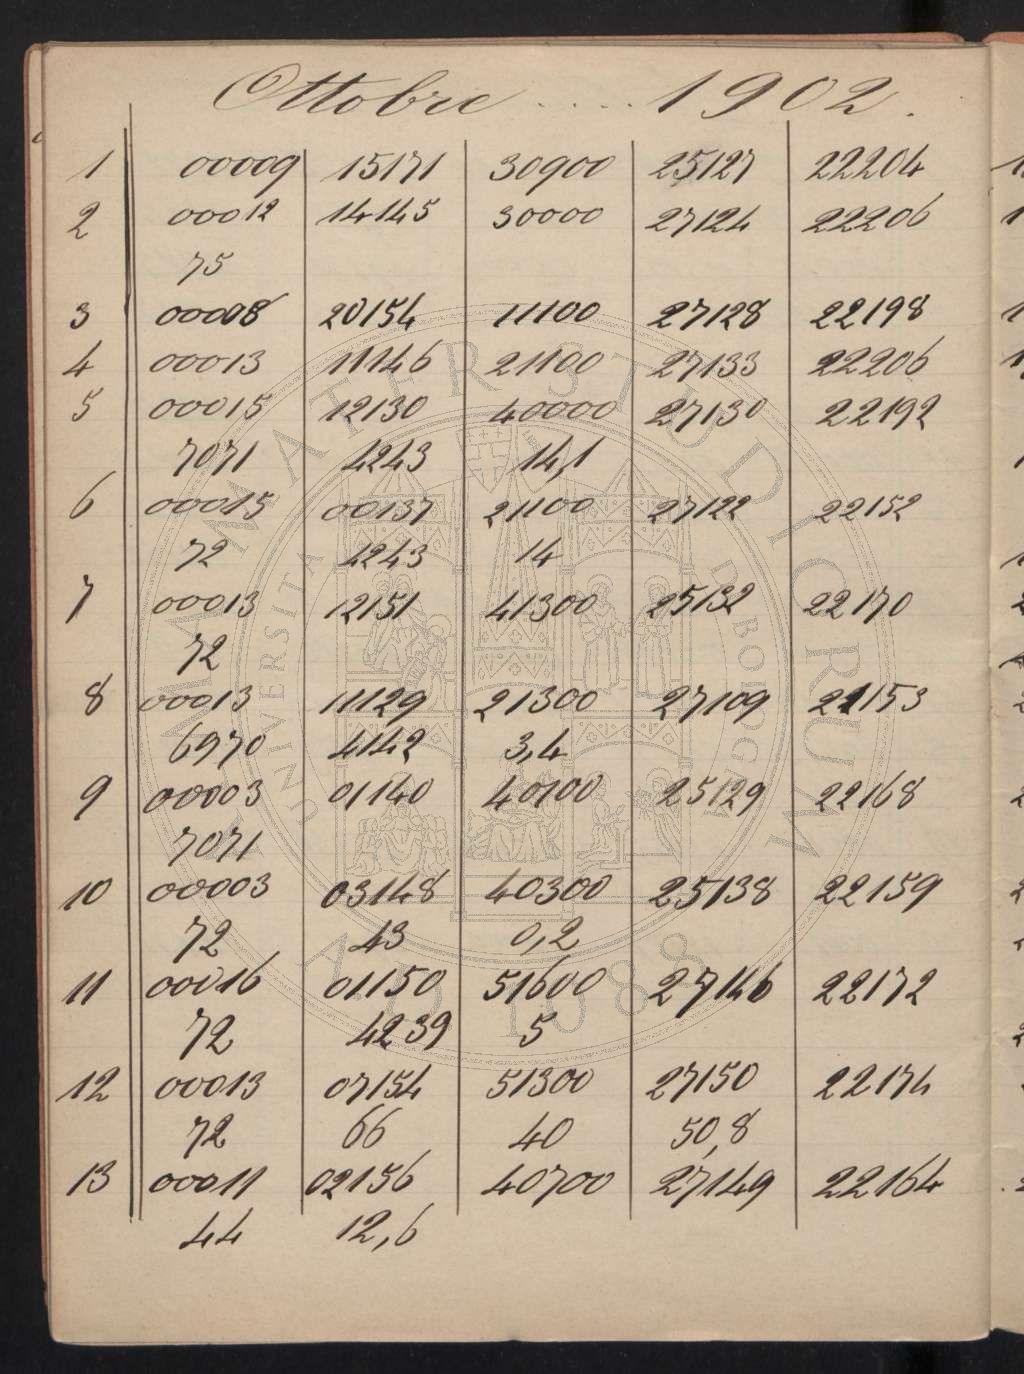 Ottobre ..... 1902.
1 00009 15171 30900 25127 22204
2 00012 14145 30000 27124 22206
75
3 00008 20154 11100 27128 22198
4 00013 11146 21100 27133 22206
5 00015 12130 40000 27130 22192
7071 4243 14,1
6 00015 00137 21100 27122 22152
72 4243 14
7 00013 12151 41300 25132 22170
72
8 00013 11129 21300 27109 22153
6970 4142 3,4
9 00003 01140 40100 25129 22168
7071
10 00003 03148 40300 25138 22159
72 43 0,2
11 00016 01150 51600 27146 22172
72 4239 5
12 00013 07154 51300 27150 22174
72 66 40 50,8
13 00011 02156 40700 27149 22164
44 12,6
ALMA MATER STUDIORUM
UNIVERSITA DI BOLOGNA
A.D. 1088